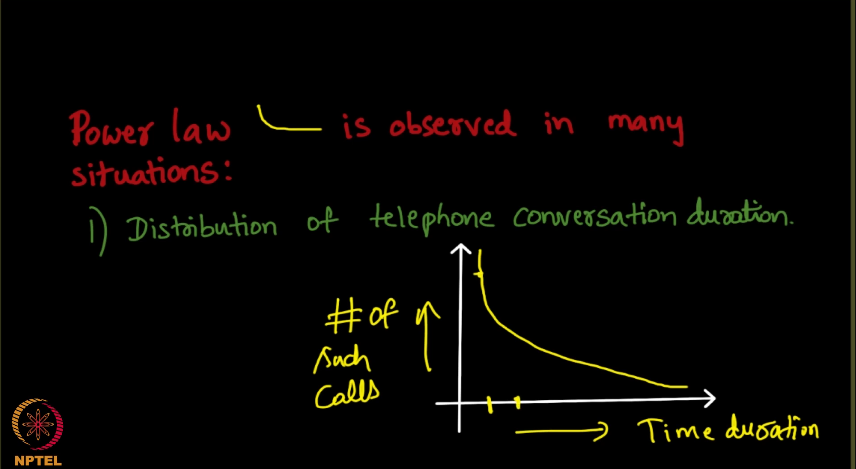 Power law is observed in many
situations:
1) Distribution of telephone conversation duration.
# of
such
calls
Time duration
NPTEL